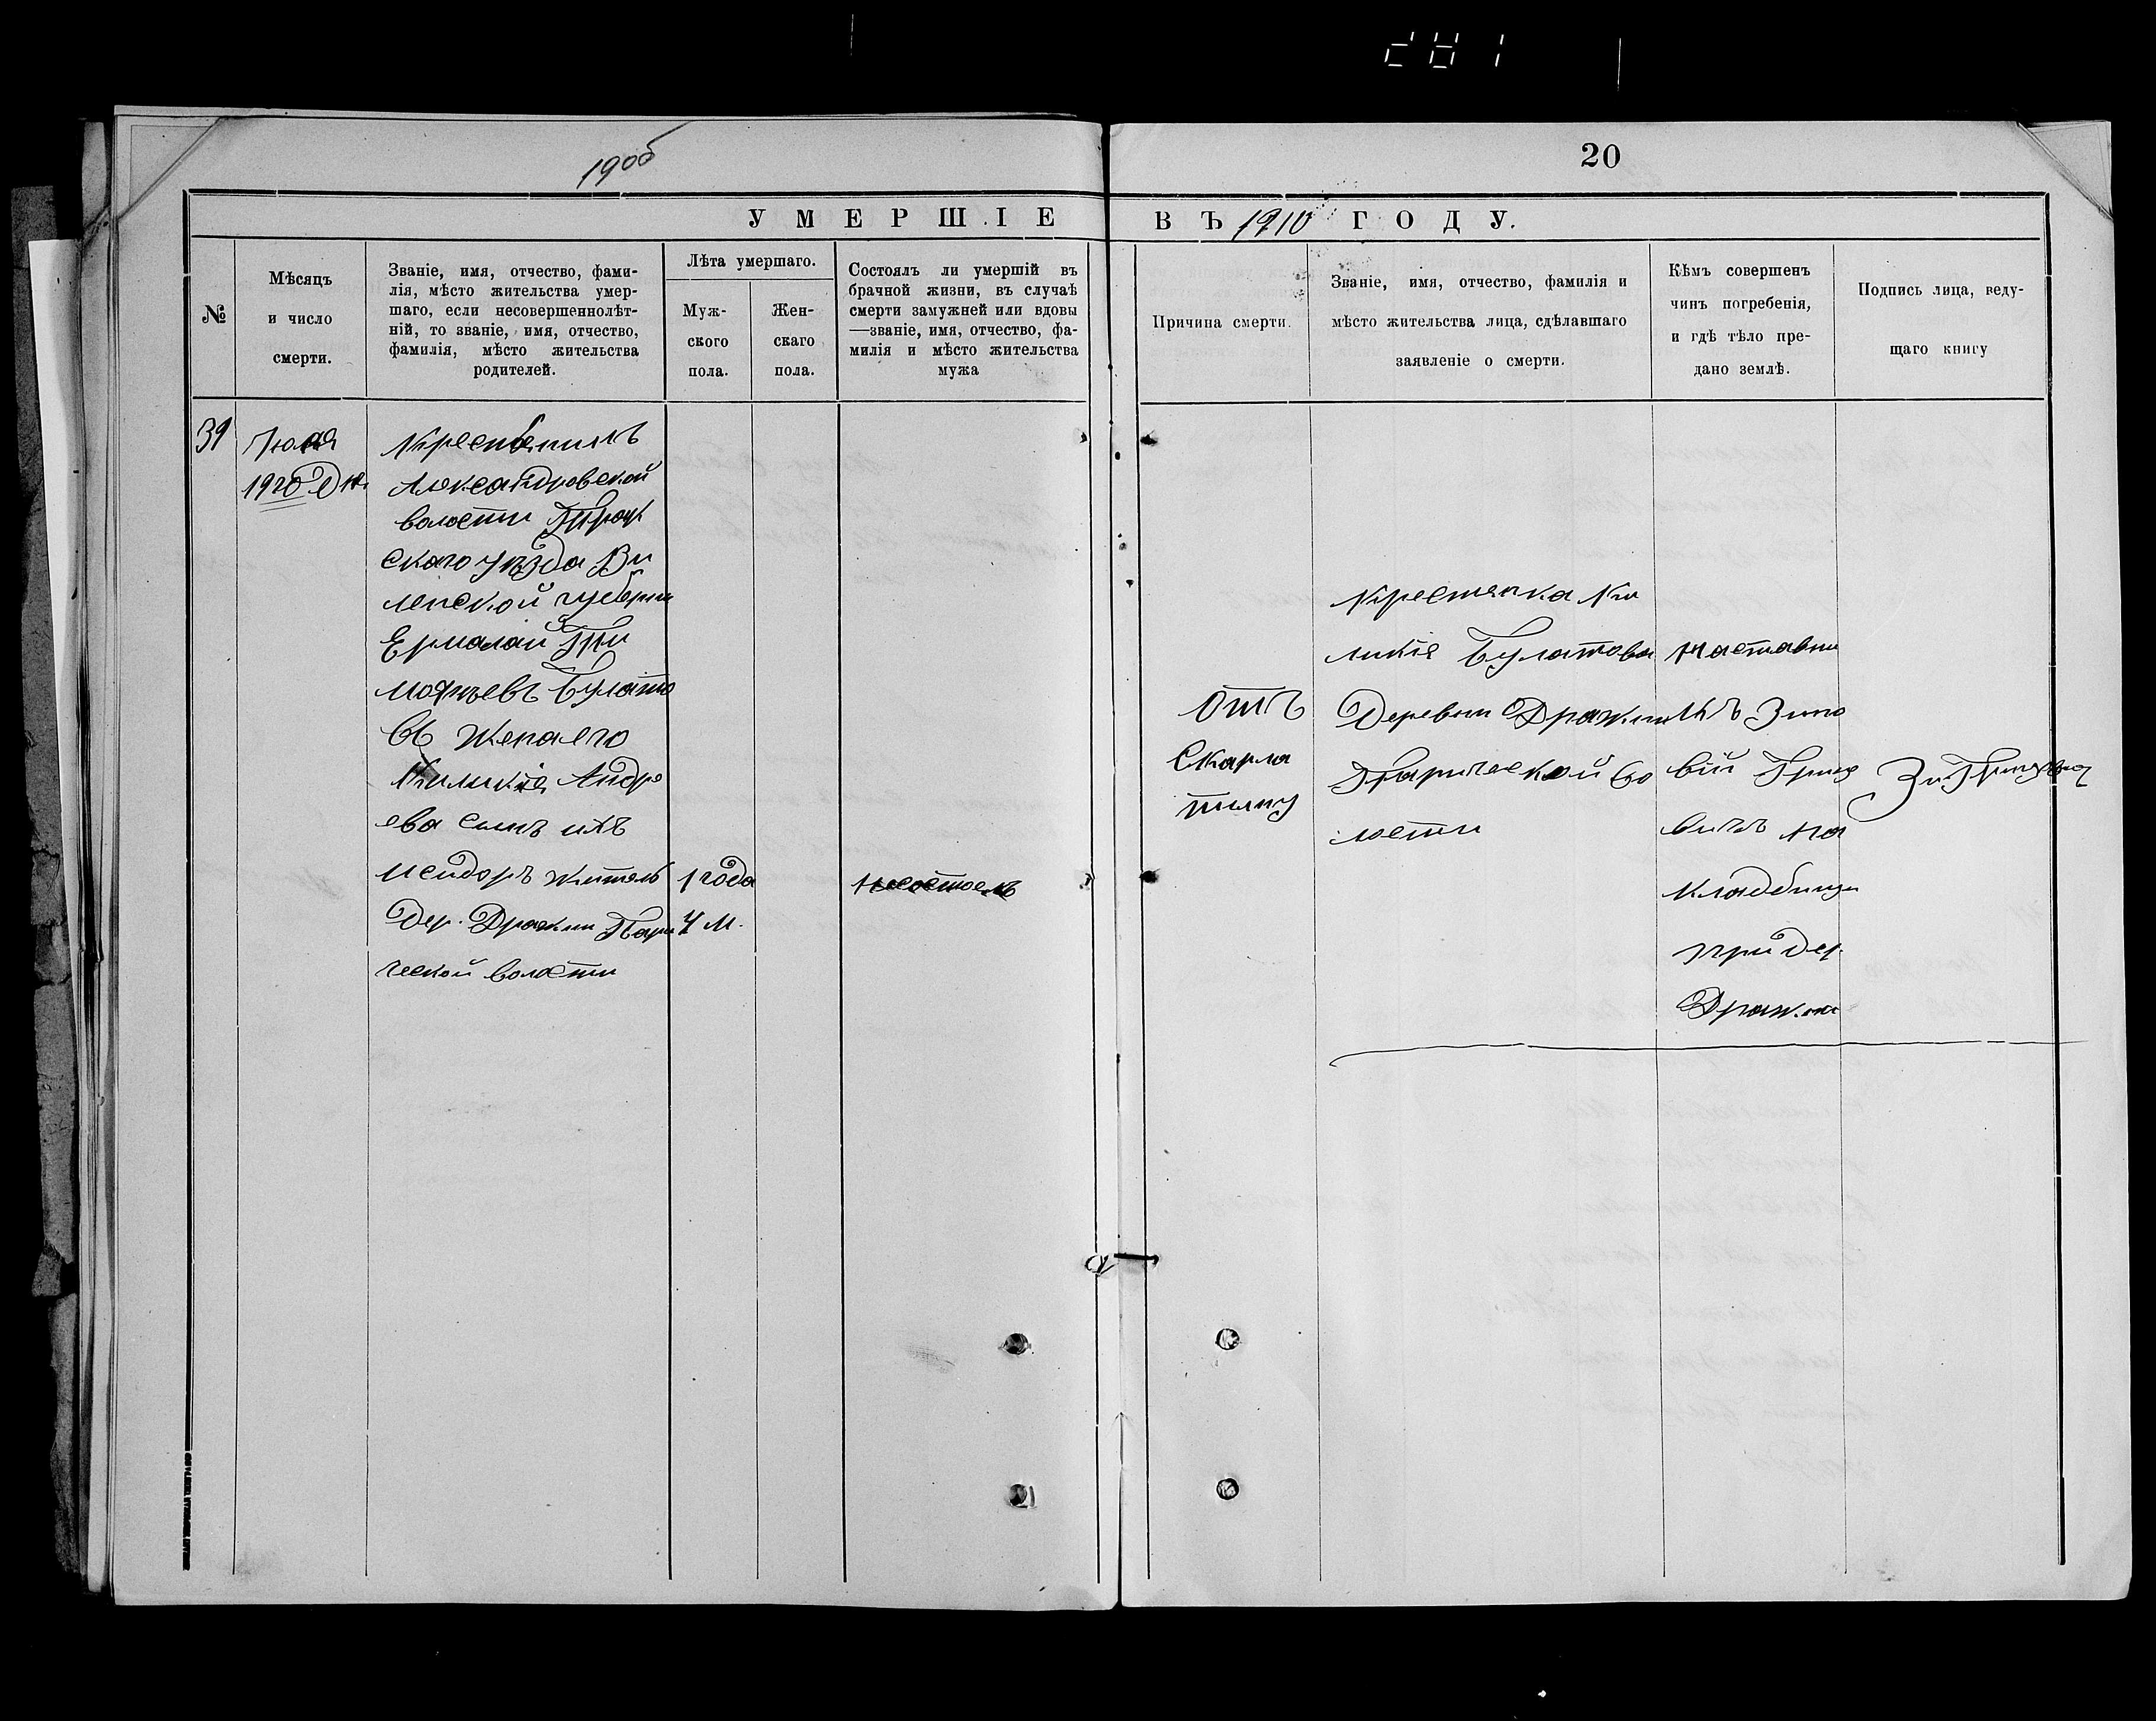 1906
20
УМЕРШІЕ ВЪ 1910 ГОДУ.
№
Мѣсяцъ
и число
смерти.
Званіе, имя, отчество, фами-
лія, мѣсто жительства умер-
шаго, если несовершеннолѣт-
ній, то званіе, имя, отчество,
фамилія, мѣсто жительства
родителей.
Лѣта умершаго.
Муж-
ского
пола.
Жен-
скаго
пола.
Состоялъ ли умершій въ
брачной жизни, въ случаѣ
смерти замужней или вдовы
—званіе, имя, отчество, фа-
милія и мѣсто жительства
мужа
Причина смерти.
Званіе, имя, отчество, фамилія и
мѣсто жительства лица, сдѣлавшаго
заявленіе о смерти.
Кѣмъ совершенъ
чинъ погребенія,
и гдѣ тѣло пре-
дано землѣ.
Подпись лица, веду-
щаго книгу
Июля
Александровской
волости Трок
скаго уѣзда Ви
ленской губерни
Ермалай Ти
мофѣевъ Булато
въ Жена его
Киликія Андре
ева сынъ ихъ
Исидоръ житель
дер. Дражни Пари
ческой волости
1 года
4 м.
несостоелъ
Отъ
Скарла
тины
Крестянка Ки
ликія Булатова
Деревни Дражни
Паричской во
лости
Наставни
къ Зино
вій Грище
вичъ на
кладбищи
при дер.
Дражни